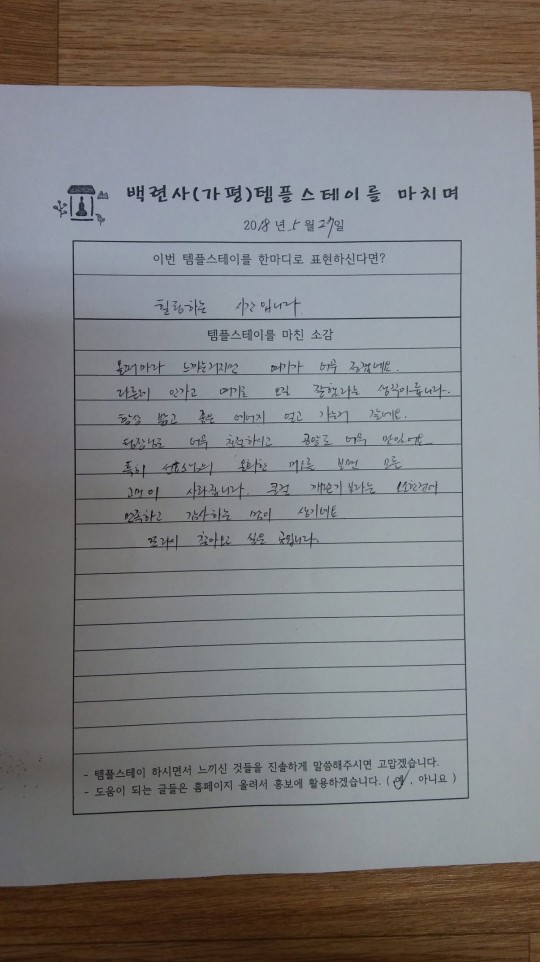 백련사(가평)템플스테이를 마치며
2018년 5월 27일
이번 템플스테이를 한마디로 표현하신다면?
힐링하는 시간입니다
템플스테이를 마친 소감
올때마다 느끼는거지만 여기가 너무 즐겁네요.
다른데 안가고 여기로 오길 잘했다는 생각이듭니다.
항상 맑고 좋은 에너지 얻고 가는거 같네요.
팀장님도 너무 친절하시고 공양도 너무 맛있어요
특히 스님의 온화한 미소를 보면 모든
고민이 사라집니다. 무얼 해본기 보다는
만족하고 감사하는 맘이 생기네요
또다시 찾아오고 싶은 곳입니다.
- 템플스테이 하시면서 느끼신 것들을 진솔하게 말씀해주시면 고맙겠습니다.
- 도움이 되는 글들은 홈페이지 올려서 홍보에 활용하겠습니다. ( 예 , 아니요 )